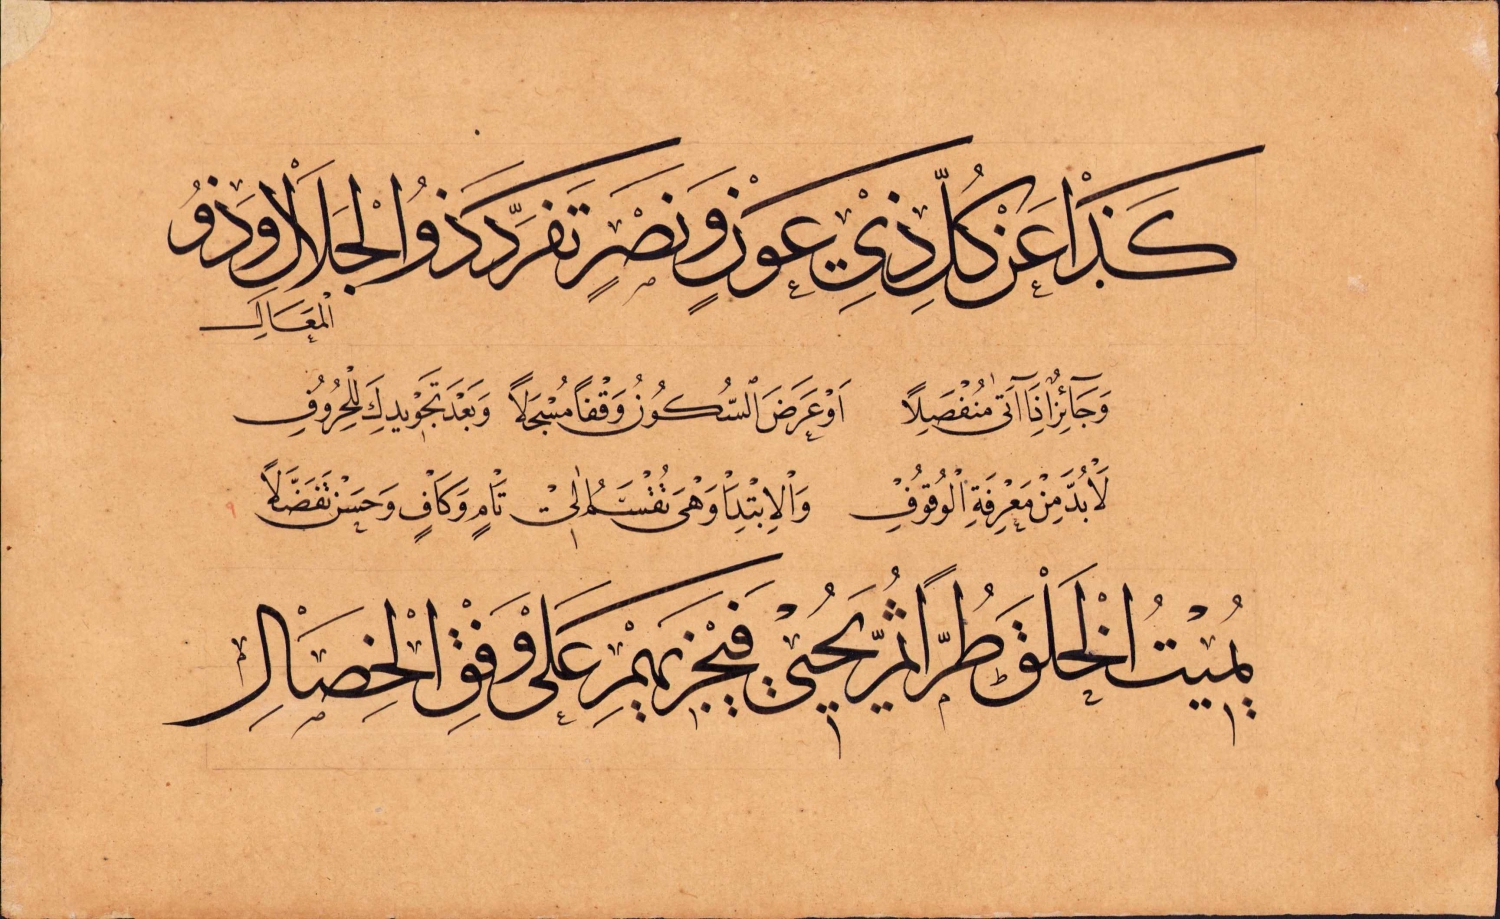 كَذَا عَنْ كُلِّ ذِيْ عَوْنٍ وَنَصْرٍ تَفَرَّدَ ذُو الْجَلَالِ وَذُو
الْمَعَالِ
وَجَآئِزٌ إِذَا آتَى مُنْفَصِلًا أَوْ عَرَضَ السُّكُونُ وَقْفًا مُسْجَلًا وَبَعْدَ تَجْوِيدِكَ لِلْحُرُوفِ
لَابُدَّ مِنْ مَعْرِفَةِ الْوُقُوفِ وَالْاِبْتِدَا وَهْيَ تُقْسَمُ إِلَىْ تَامٍ وَكَافٍ وَحَسَنْ تَفَضَّلًا
يُمِيْتُ الْخَلْقَ طُرًّا ثُمَّ يُحْيِيْ فَيَجْزِيْهِمْ عَلَى وَفْقِ الْخِصَالِ